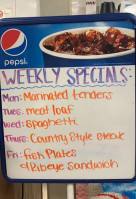 pepsi
WEEKLY SPECIALS:
Mon: Marinated tenders
Tues: meat loaf
Wed: Spaghetti
Thurs: Country Style Steak
Fri: fish Plates
& Ribeye Sandwich